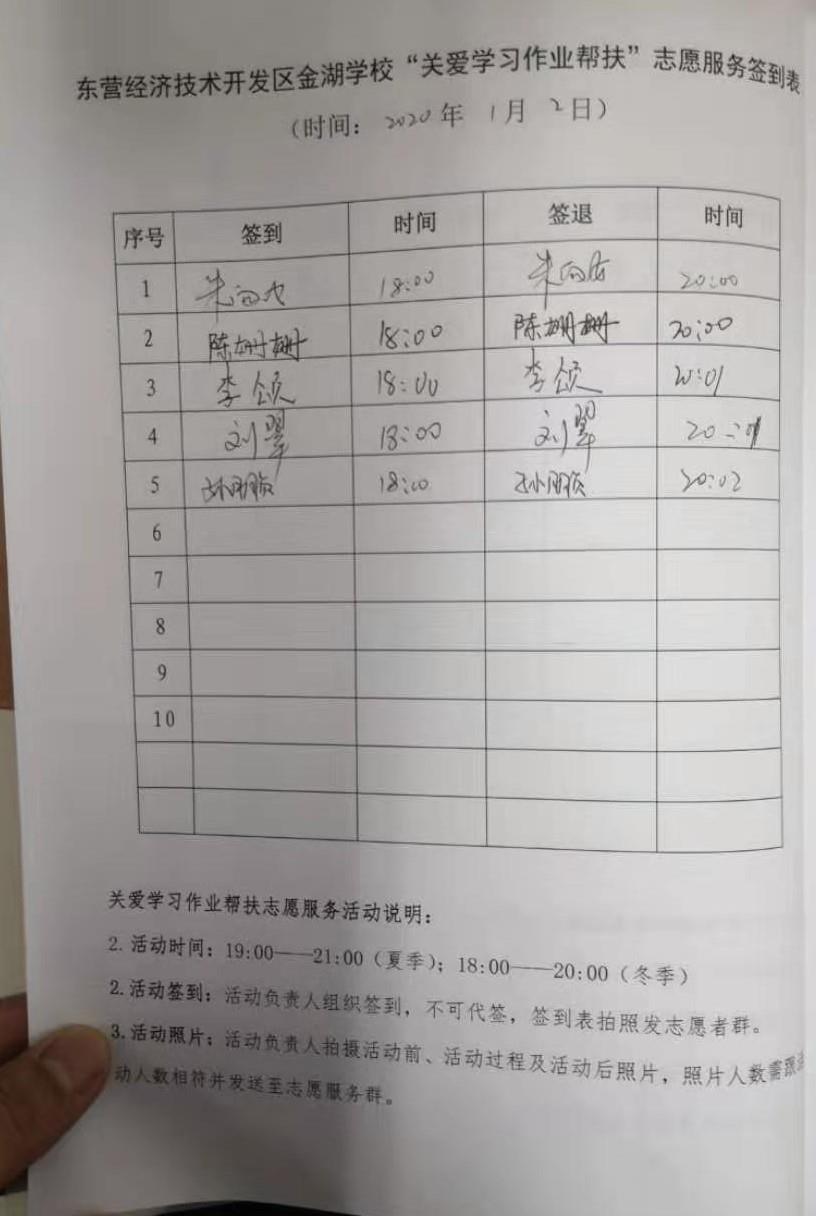 东营经济技术开发区金湖学校“关爱学习作业帮扶”志愿服务签到表
（时间：2020年 1月 2日）
序号 签到 时间 签退 时间
1 18:00 20:00
2 陈姗姗 18:00 陈姗姗 20:00
3 李颂 18:00 李颂 20:01
4 刘翠 18:00 刘翠 20:01
5 18:00 20:02
6
7
8
9
10
关爱学习作业帮扶志愿服务活动说明：
2.活动时间：19:00——21:00（夏季）；18:00——20:00（冬季）
2.活动签到：活动负责人组织签到，不可代签，签到表拍照发志愿者群。
3.活动照片：活动负责人拍摄活动前、活动过程及活动后照片，照片人数需跟
动人数相符并发送至志愿服务群。